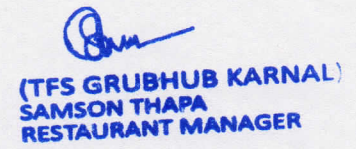 (TFS GRUBHUB KARNAL)
SAMSON THAPA
RESTAURANT MANAGER